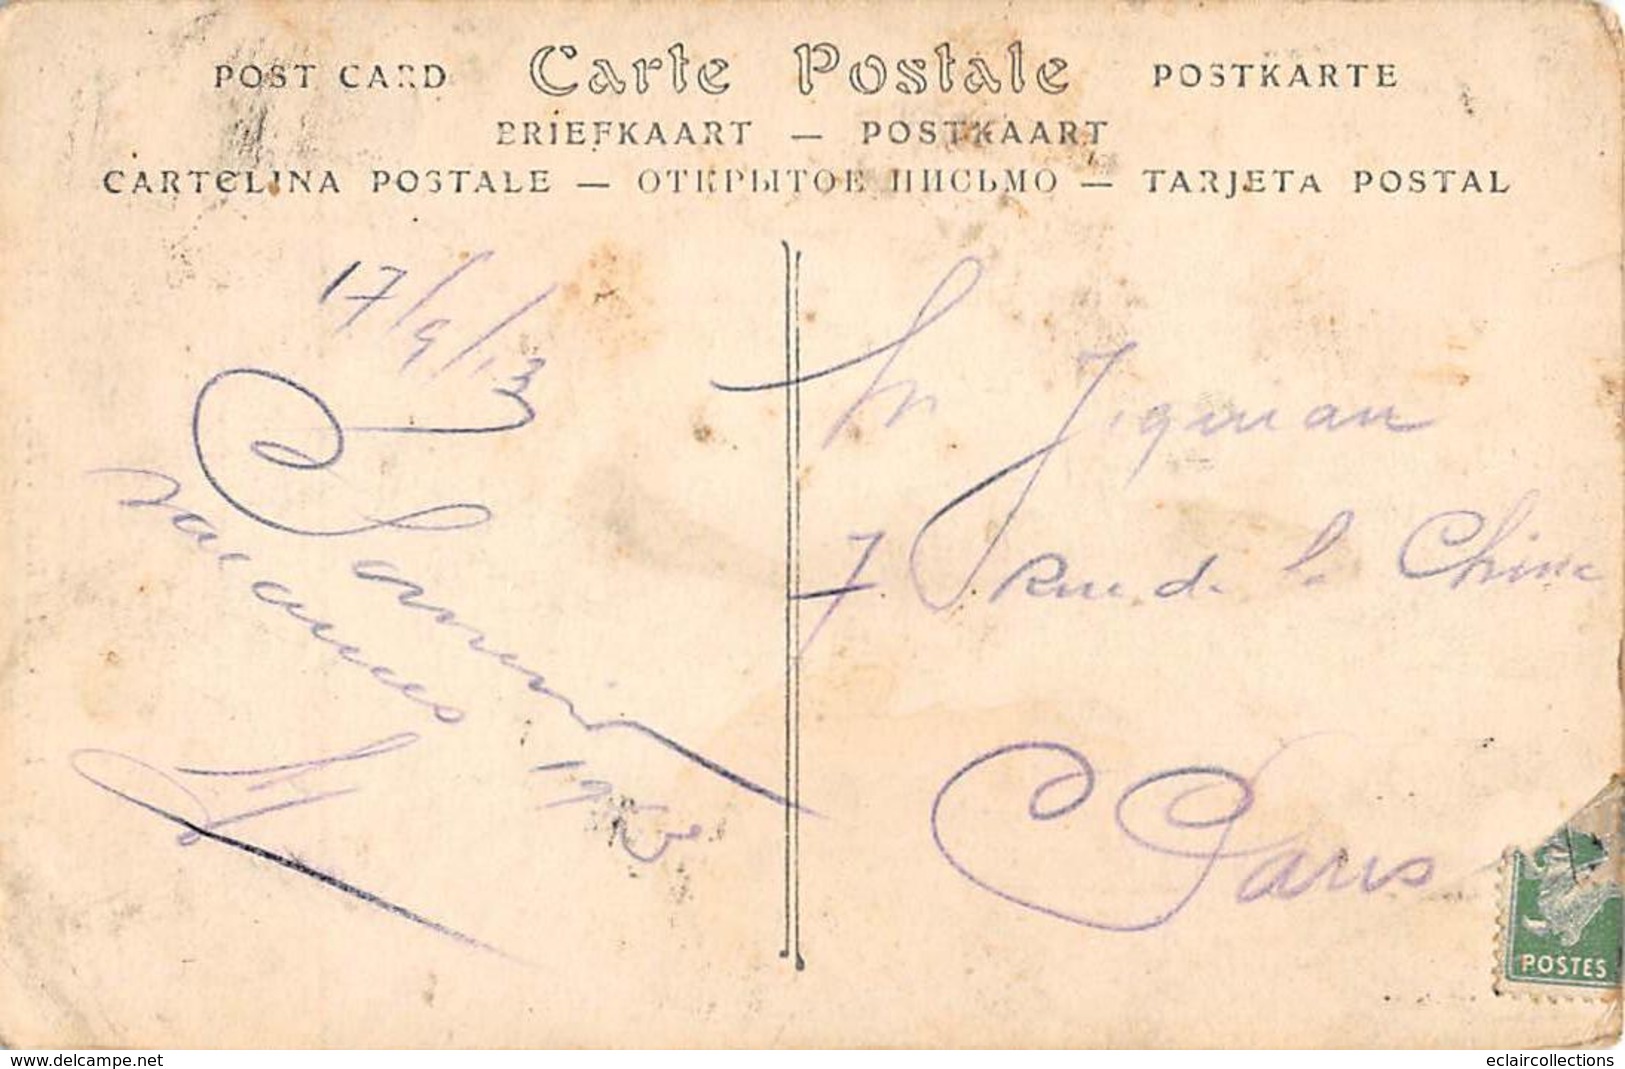 POST CARD Carte Postale POSTKARTE
BRIEFKAART — POSTKAART
CARTOLINA POSTALE — ОТКРЫТОЕ ПИСЬМО — TARJETA POSTAL
17/9/13
Souvenir
vacances
1913
Mr
7 Rue de la Chine
Paris
POSTES
www.delcampe.net
eclaircollections